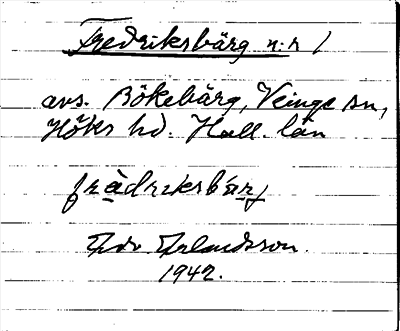 Fredriksbärg n:r 1
avs. Bökebärg, Veinge sn,
Höks hd. Hall. län
fràdriksbärj
Edv. Erlandsson.
1942.